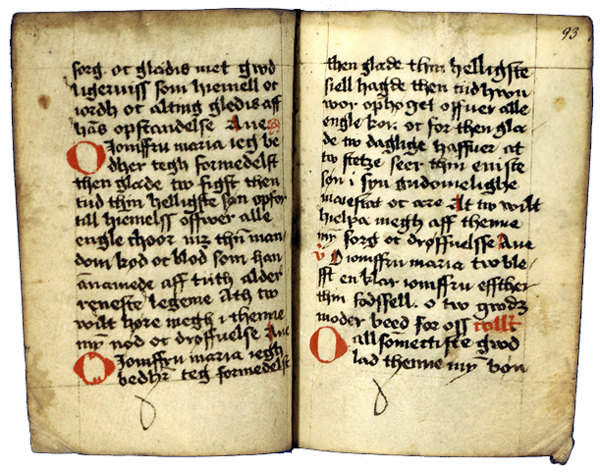 sorg. oc glædis met gwd
ligerviss som hiemell oc
iordh oc alting gledis aff
hās opstandelse Aue
O Jomffru maria iegh be
dher tegh formedelst
then glæde tw figst then
tiid thm helligste søn opfor
till hiemelss offwer alle
engle choor m3 thn̄ man
dom kød oc blod som han
anamede aff tith alder
reneste legeme Ath tw
wilt høre megh i thenne
my̅ nød oc drøffuelse Aue
O Jomffru maria iegh
bedhr teg formedelst
93
then glæde thin helligste
siell hagde then tiid hwn
wor ophøget offuer alle
engle kor. oc for then glæ
de tw daglige haffuer at
tw stetze seer thin eniste
søn i syn gudomelighe
maiestat oc ære At tw wilt
hielpa megh aff thenne
my̅ sorg oc drøffuelsse Aue
v̇ O iomffru maria tw ble
fft en klar iomffru effther
thin fødssell. o tw gwdz
moder beed for oss collt̄
O allsommectiste gwd
lad thenne my̅ bøn